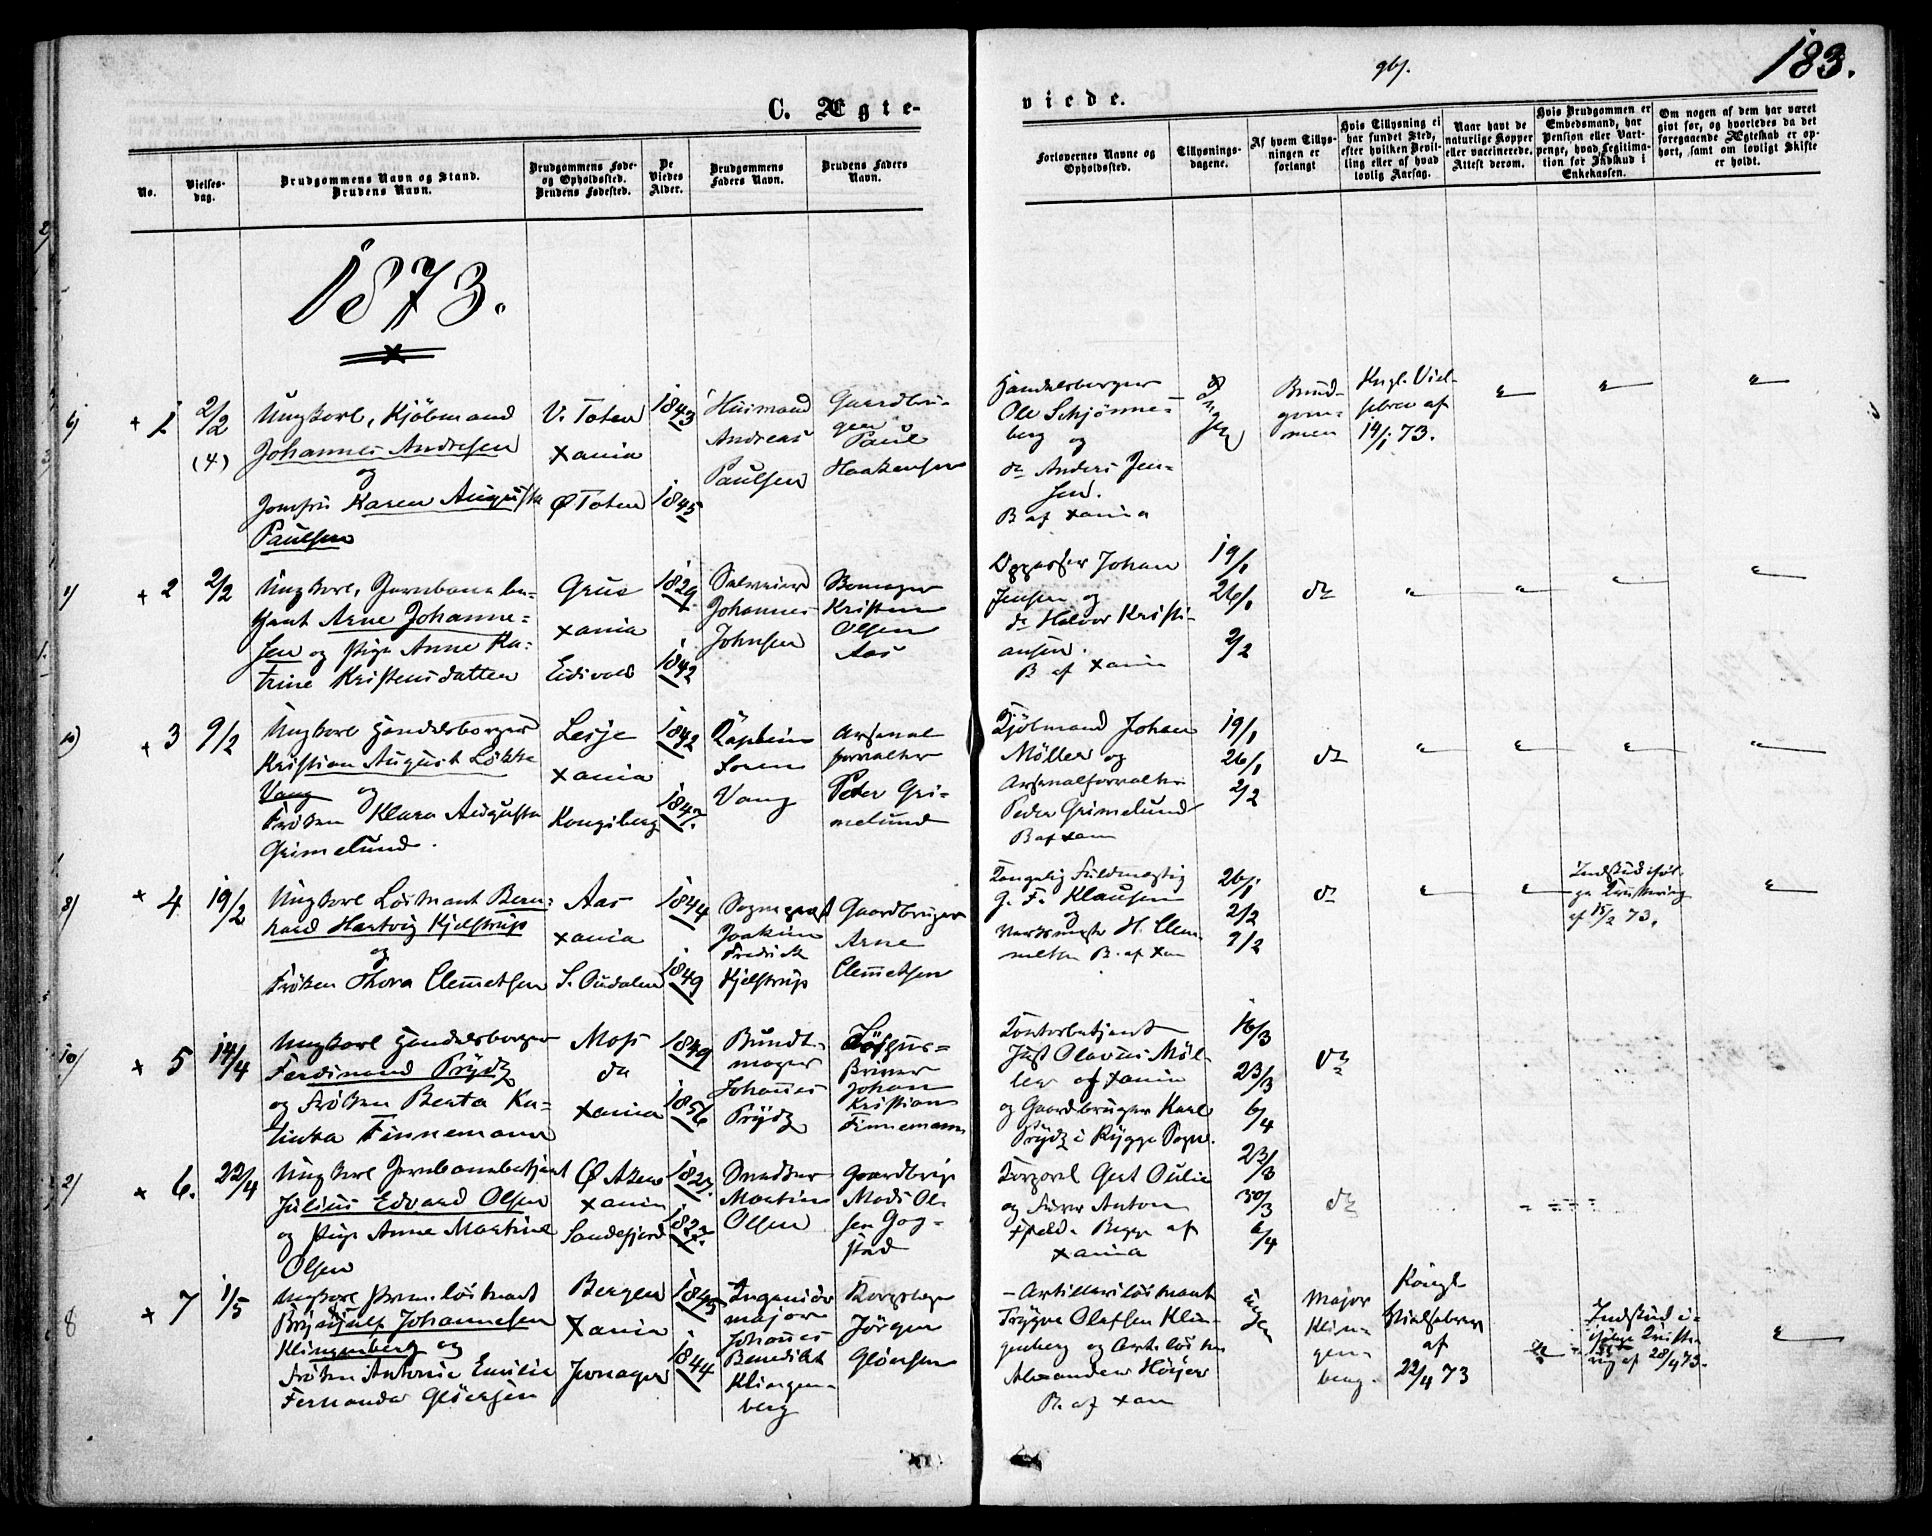 183.
967.
C. Ægte-
viede.
No.
Vielses-
dag.
Brudgommens Navn og Stand.
Brudens Navn.
Brudgommens Føde-
og Opholdssted.
Brudens Fødested.
De
Viedes
Alder.
Brudgommens
Faders Navn.
Brudens Faders
Navn.
Forlovernes Navne og
Opholdssted.
Tillysnings-
dagene.
Af hvem Tillys-
ningen er
forlangt
Hvis Tillysning ei
har fundet Sted,
efter hvilken Bevil-
ling eller af hvad
lovlig Aarsag.
Naar havt de
naturlige Kopper
eller vaccinerede.
Attest derom.
Hvis Brudgommen er
Embedsmand, har
Pension eller Vart-
penge, hvad Legitima-
tion for Indskud i
Enkekassen.
Om nogen af dem har været
gift før, og hvorledes da det
foregaaende Ægteskab er op-
hørt, samt om lovligt Skifte
er holdt.
1873.
1
2/2
(4)
Ungkarl, Kjøbmand
Johannes Andresen
og
Jomfru Karen Augusta
Paulsen
V. Toten
Xania
Ø Toten
1843
1845
Huusmand
Andreas
Paulsen
Gaardbru-
ger
Paul
Haakensen
Handelsborger
Ole Schjønne-
berg og
do Anders Jen-
sen.
B af Xania
Brud-
gom-
men
Kngl. Viel-
sebrev af
14/1 73.
2
2/2
Ungkarl, Jernbanebe-
tjent Arne Johanne-
sen og Pige Anne Ka-
trine Kristensdatter
Grue
Xania
Eidsvold
1829
1842
Johannes
Johnsen
Kristen
Olsen
Aas
Opasser Johan
Jensen og
do Halvor Kristi-
ansen.
B af Xania
19/1
26/1
2/2
do
3
9/2
Ungkarl Handelsborger
Kristian August Løkke
Vang og
Frøken Klara Augusta
Grimelund.
Lesje
Xania
Kongsberg
1842
1847
Kaptein
Soren
Vang
Arsenal
forvalter
Peter Gri-
melund
Kjøbmand Johan
Møller og
Arsenalforvalter
Peder Grimelund
B af Xania
19/1
26/1
2/2
do
4
19/2
Ungkarl Løitnant Bern-
hard Hartvig Kjelstrup
og
Frøken Thora Clemetsen
Aas
Xania
S. Oudalen
1844
1849
Sogneprest
Joakim
Fredrik
Kjelstrup
Gaardbruger
Arne
Clemetsen
Kongelig Fuldmægtig
G. F. Klausen
og
H. Clem-
metsen B. af Xan
26/1
2/2
9/2
do
Indskud iføl-
ge Kvittering
af 15/2 73.
5
14/4
Ungkarl Handelsborger
Ferdinand Prydz
og Frøken Berta Ka-
tinka Finnemann
Moss
do
Xania
1849
1856
Bundt-
mager
Johannes
Prydz
Johan
Kristian
Finnemann
Kontorbetjent
Just Olavus Møl-
ler af Xania
og Gaardbruger Karl
Prydz i Rygge Sogn.
16/3
23/3
6/4
do
6.
22/4
Ungkarl Jernbanebetjent
Julius Edvard Olsen
og Pige Anne Martine
Olsen
Ø Aker
Xania
Sandefjord
1827
Snedker
Martin
Olsen
Gaardbrug
Mads Ol-
sen Gog-
stad
Korporal Gert Oulie
og Furer Anton
Fjeld. Begge af
Xania
23/3
30/3
6/4
do
7
1/5
Ungkarl Prem.løitnant
Brynjulf Johannesen
Klingenberg og
Frøken Antonie Emilie
Fernanda Gløersen
Bergen
Xania
Jevnager
1845
1844
Ingeniør
major
Johannes
Benedikt
Klingen-
berg
Korpslæge
Jörgen
Gløersen
Artilleriløitnant
Trygve Olafsen Klin-
genberg og Art.løitn.
Alexander Höyer
B. af Xan
ingen
Major
Klin-
gen-
berg.
Kongl
Vielsebrev
af
22/4 73
Indskud i-
følge Kvitte-
ring af 28/4 73.